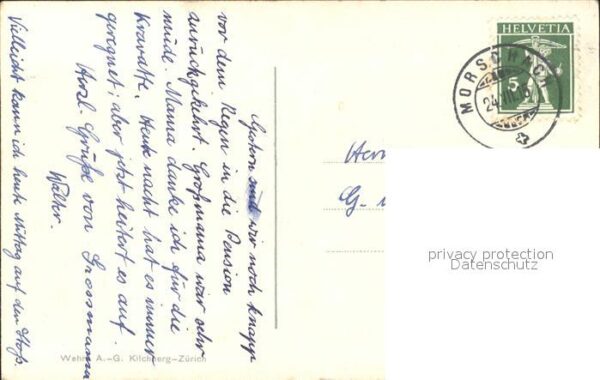 Gestern sind wir noch knapp
vor dem Regen in die Pension
zurückgekehrt. Großmama war sehr
müde. Mama danke ich für die
Kravatte. Heute nacht hat es immer
geregnet; aber jetzt heitert es auf.
Herzl. Grüße von Grossmama
Walter.
Vielleicht kann ich heute Mittag auf den Stoß.
Wehrli A.-G. Kilchberg-Zürich
HELVETIA
5
MORSCHACH
24.VII.15
Herrn
G.
privacy protection
Datenschutz